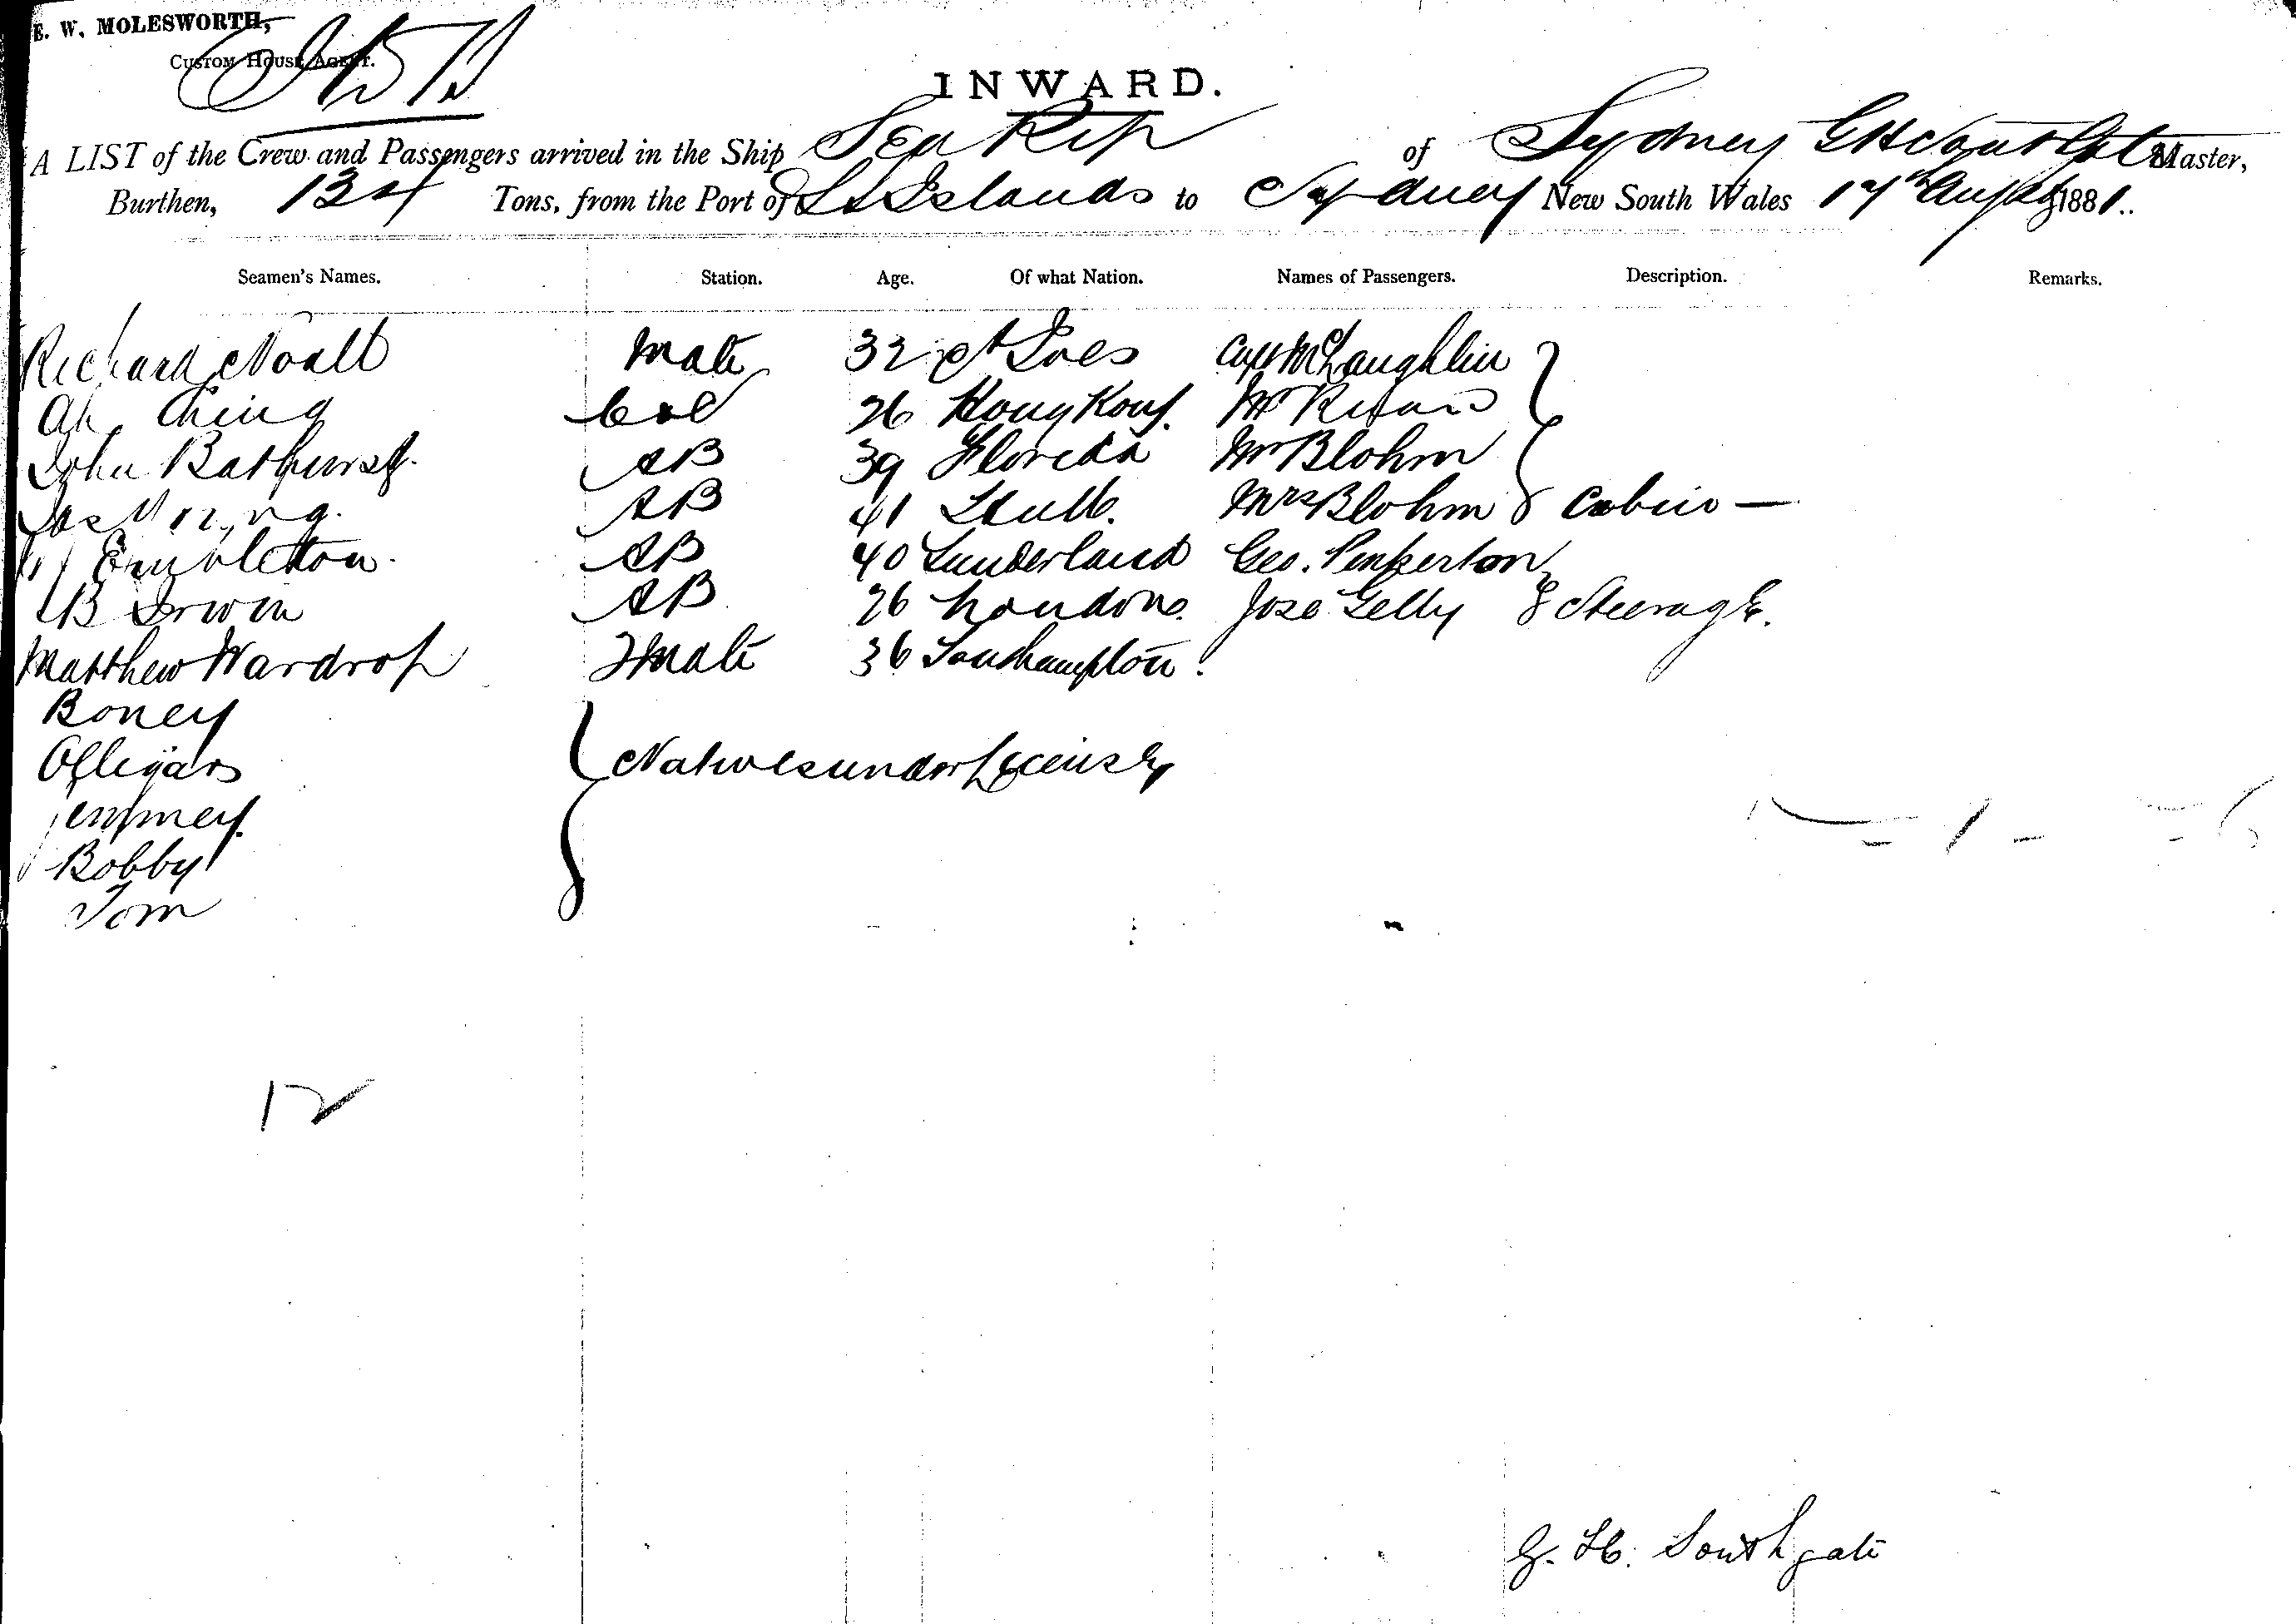 E. W. MOLESWORTH,
CUSTOM HOUSE AGENT.
INWARD.
A LIST of the Crew and Passengers arrived in the Ship Sea Rip of Sydney G H Southgate Master,
Burthen, 134 Tons, from the Port of S. S. Islands to Sydney New South Wales 17th August 1881..
Seamen's Names. Station. Age. Of what Nation. Names of Passengers. Description. Remarks.
Richard Noall Mate 32 St Ives Capt McLaughlin
Ah Ching Cook 26 Hong Kong. Mr
John Bathurst. AB 39 Florida Mr Blohm
Jas AB 41 Hull. Mrs Blohm Cabin —
Embleton. AB 40 Sunderland Geo. Penkerton
B Irwin AB 26 London. Jose Gelly Steerage.
Matthew Wardrop 2 Mate 36 Southampton.
Boney
Natives under License
Jemmey.
Bobby
Tom
12
G. H. Southgate